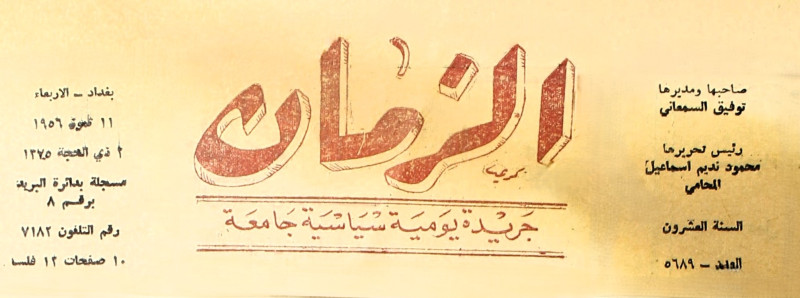 صاحبها ومديرها
توفيق السمعاني
رئيس تحريرها
محمود نديم اسماعيل
المحامي
السنة العشرون
العدد – ٥٦٨٩
الزمان
جريدة يومية سياسية جامعة
بغداد – الاربعاء
١١ تموز ١٩٥٦
٢ ذي الحجة ١٣٧٥
مسجلة بدائرة البريد
برقم ٨
رقم التلفون ٧١٨٢
١٠ صفحات ١٢ فلسا